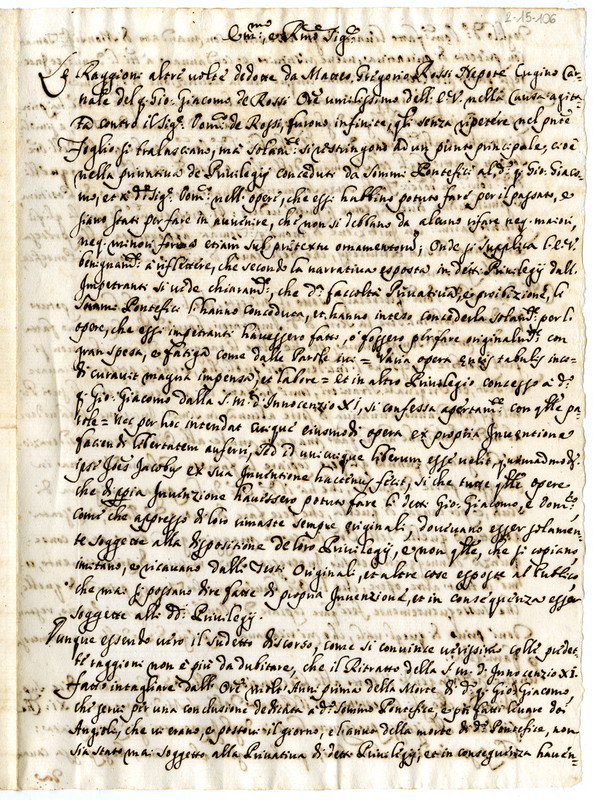 2-15-106
Em.mo, e R.mo Sig.re
Le Raggioni altre volte dedotte da Matteo Gregorio Rossi Nepote Cugino Car-
nale del q. Gio. Giacomo de Rossi Or.e umilissimo dell'E.V. nella Causa agita-
ta contro il Sig.r Dom.co de Rossi, furono infinite, q.li senza ripetere nel pnte
Foglio si tralasciano, mà solam.te si restringono ad un punto principale, cioè
nella privativa de Privilegij conceduti da Sommi Pontefici al d.o q. Gio. Giaco-
mo, et à d.o Sig.r Dom.co nell'opere, che essi habbino potuto fare per il passato, e
siano stati per fare in avvenire, che non si debbano da alcuno rifare neq. maiori,
neq. minori forma etiam sub pretextu ornamentorum; Onde si supplica l'E.V.
benignam.te à riflettere, che secondo la narrativa esposta in detti Privilegij dall'
Impetranti si vede chiaram.te, che d.a facoltà Privativa, e proibizione, li
Sommi Pontefici l'hanno conceduta, et hanno inteso concederla solam.te per l'
opere, che essi impetranti havessero fatto, ò fossero per fare originalm.te con
gran spesa, e fatiga come dalle Parole ivi = Varia opera eneis tabulis inci-
di curavit magna impensa, et labore = et in altro Privilegio concesso à d.o
q. Gio. Giacomo dalla S. m. d'Innocenzio XI, si confessa apertam.te con q.lle pa-
role = Nec per hoc intendat cuique eiusmodi opera ex propria Inventione
faciendi libertatem auferri, sed id unicuique liberum esse velit, quemadmod.
ipse Jo̅es Jacobus ex sua Inventione hactenus fecit, si che tutte q.lle opere
che di ppia Invenzione havessero potuto fare li detti Gio. Giacomo, e Dom.co,
come che appresso di loro rimaste sempre originali, dovevano esser solamen-
te soggette alla disposizione de loro Privilegij, e non q.lle, che si copiano
imitano, e ricavano dalli Testi Originali, et altre cose esposte al Publico
che mai si possano dire fatte di propria Invenzione, et in conseguenza esser
soggette alli dd. Privilegij.
Dunque essendo vero il sudetto discorso, come si convince verissimo colle predet-
te raggioni non è più da dubitare, che il Ritratto della S. m. d'Innocenzo XI.
fatto intagliare dall'Or.e molti Anni prima della Morte di d.o q. Gio. Giacomo,
che servì per una conclusione dedicata à d.o Sommo Pontefice, e poi fatti levare doi
Angioli, che vi erano, e postovi il giorno, e l'anno della morte di d.o Pontefice, non
sia stato mai soggetto alla Privativa di detti Privilegij, et in conseguenza haven-